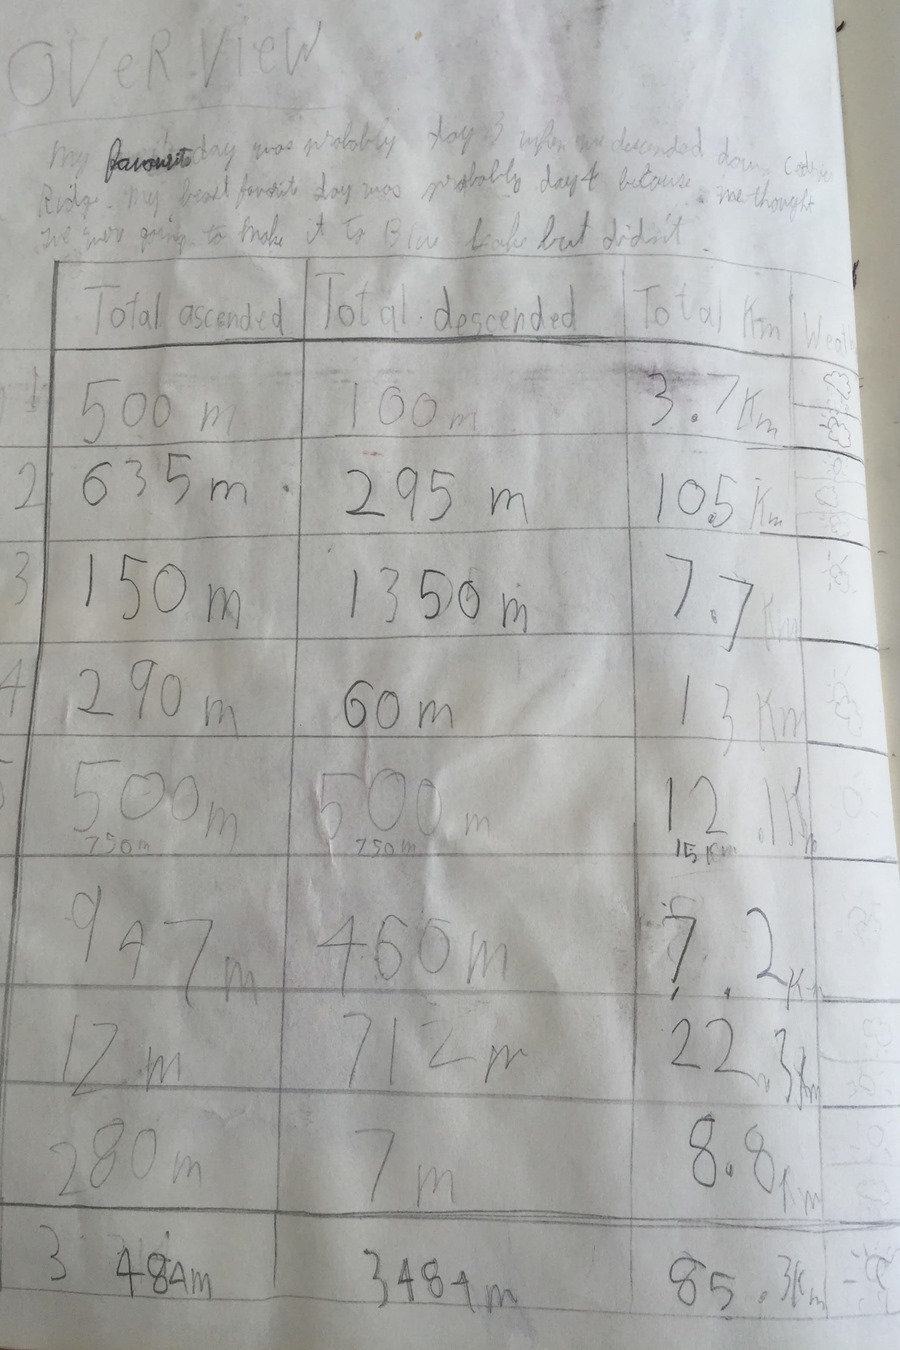 OVeRVieW
My favourite day was probably day 3 when we descended down
Ridge. My least favorite day was probably day 4 because we thought
we were going to make it to Blue Lake but didn't.
Total ascended Total descended Total Km Weath
1 500 m 100 m 3.7 Km
2 635 m 295 m 10.5 Km
3 150 m 1350 m 7.7 Km
4 290 m 60 m 13 Km
5 500 m 500 m 12.1 Km
750m 750m 15 Km
947 m 460 m 7.2 Km
12 m 712 m 22.3 Km
280 m 7 m 8.8 Km
3 484m 3484m 85.3Km